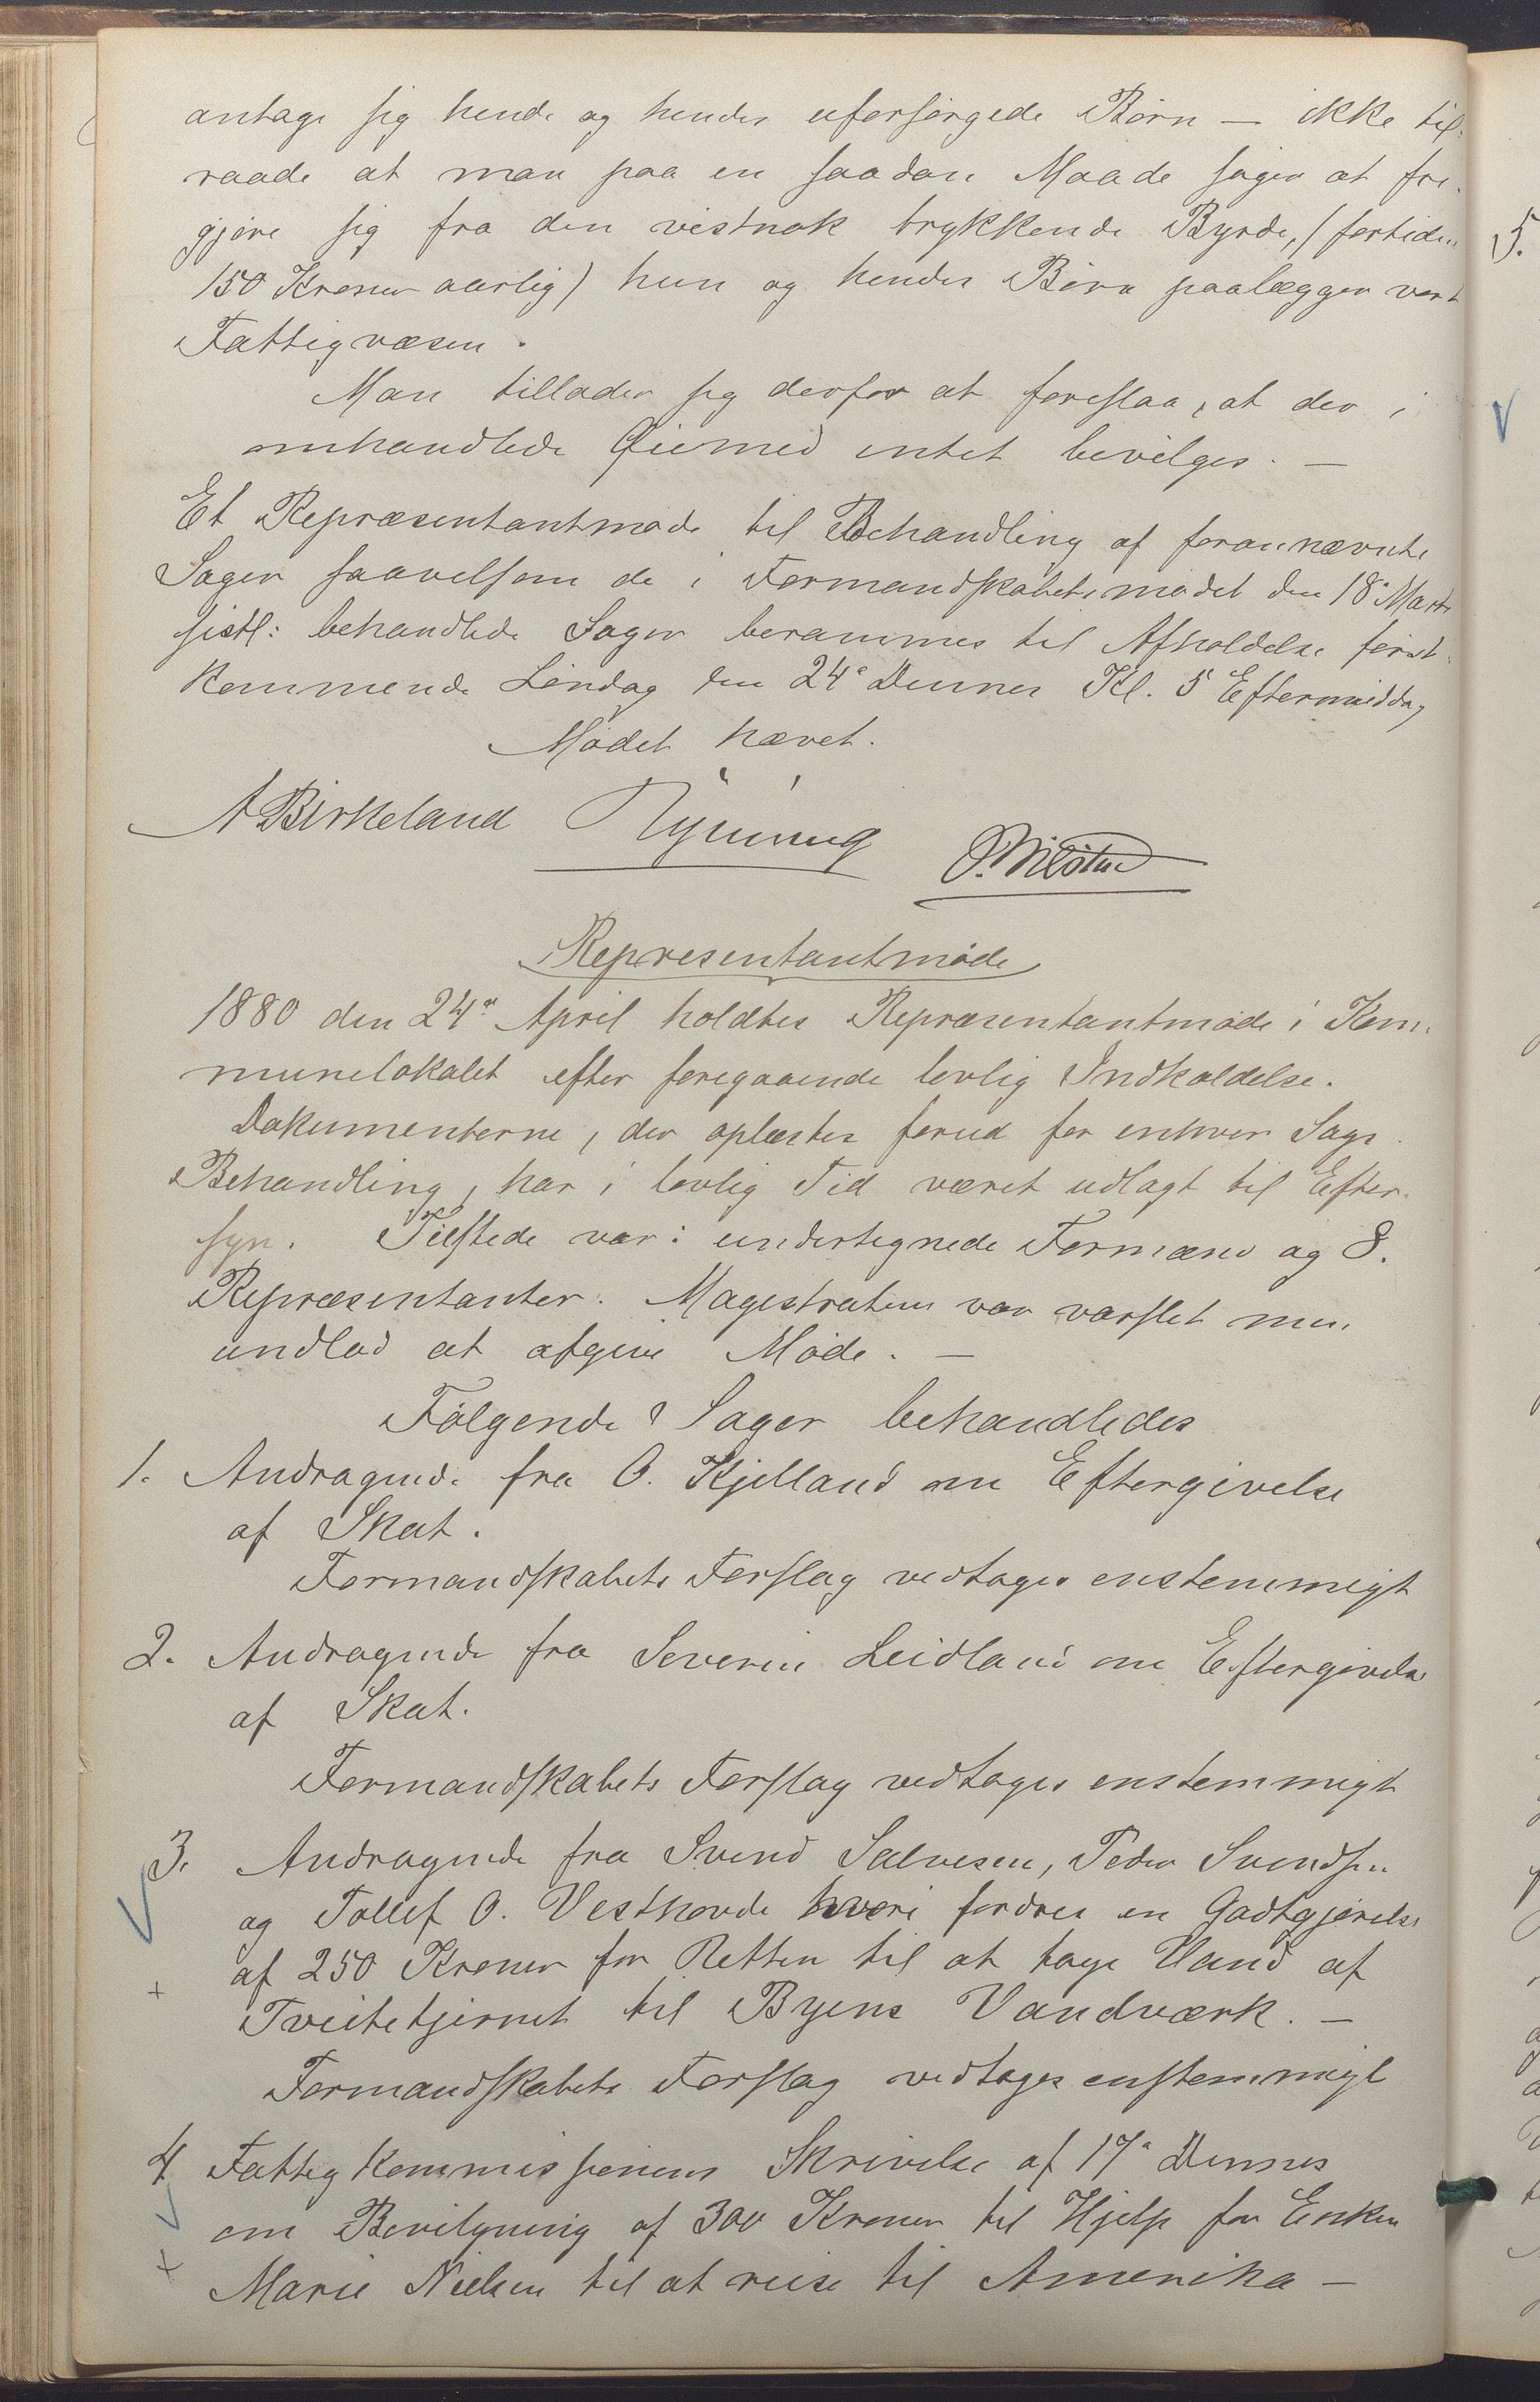 antage sig hende og hendes uforsørgede Børn — ikke til-
raade at man paa en saadan Maade søger at fri-
gjøre sig fra den vistnok trykkende Byrde, (fortiden
150 Kroner aarlig) hun og hendes Børn paalægger vort
Fattigvæsen.
Man tillader sig derfor at foreslaa, at der i
omhandlede Øiemed intet bevilges. —
Et Repræsentantmøde til Behandling af forannævnte
Sager saavelsom de i Formandskabetsmødet den 18de Marts
sistl: behandlede Sager berammes til Afholdelse først-
kommende Løndag den 24de Dennes Kl. 5 Eftermiddag
Mødet hævet.
A Birkeland
Represententmøde
1880 den 24de April holdtes Repræsentantmøde i Kom-
munelokalet efter foregaaende lovlig Indkaldelse.
Dokumenterne, der oplæstes forud for enhver Sags
Behandling, har i lovlig Tid været udlagt til Efter-
syn. Tilstede var: undertegnede Formænd og 8.
Repræsentanter. Magistraten var varslet men
undlod at afgive Møde. —
Følgende Sager behandledes
1. Andragende fra O. Kjelland om Eftergivelse
af Skat.
Formandskabets Forslag vedtages enstemmigt
2. Andragende fra Severin Leidland om Eftergivelse
af Skat.
Formandskabets Forslag vedtages enstemmigt
3. Andragende fra Svend Salvesen, Peder Svendsen
og Tollef O. Vesthovde hvori fordres en Godtgjørelse
af 250 Kroner for Retten til at tage Vand af
Tveitetjernet til Byens Vandværk. —
Formandskabets Forslag vedtages enstemmigt
4. Fattigkommissionens Skrivelse af 17de Dennes
om Bevilgning af 300 Kroner til Hjelp for Enken
Marie Nielsen til at reise til Amerika —
5.